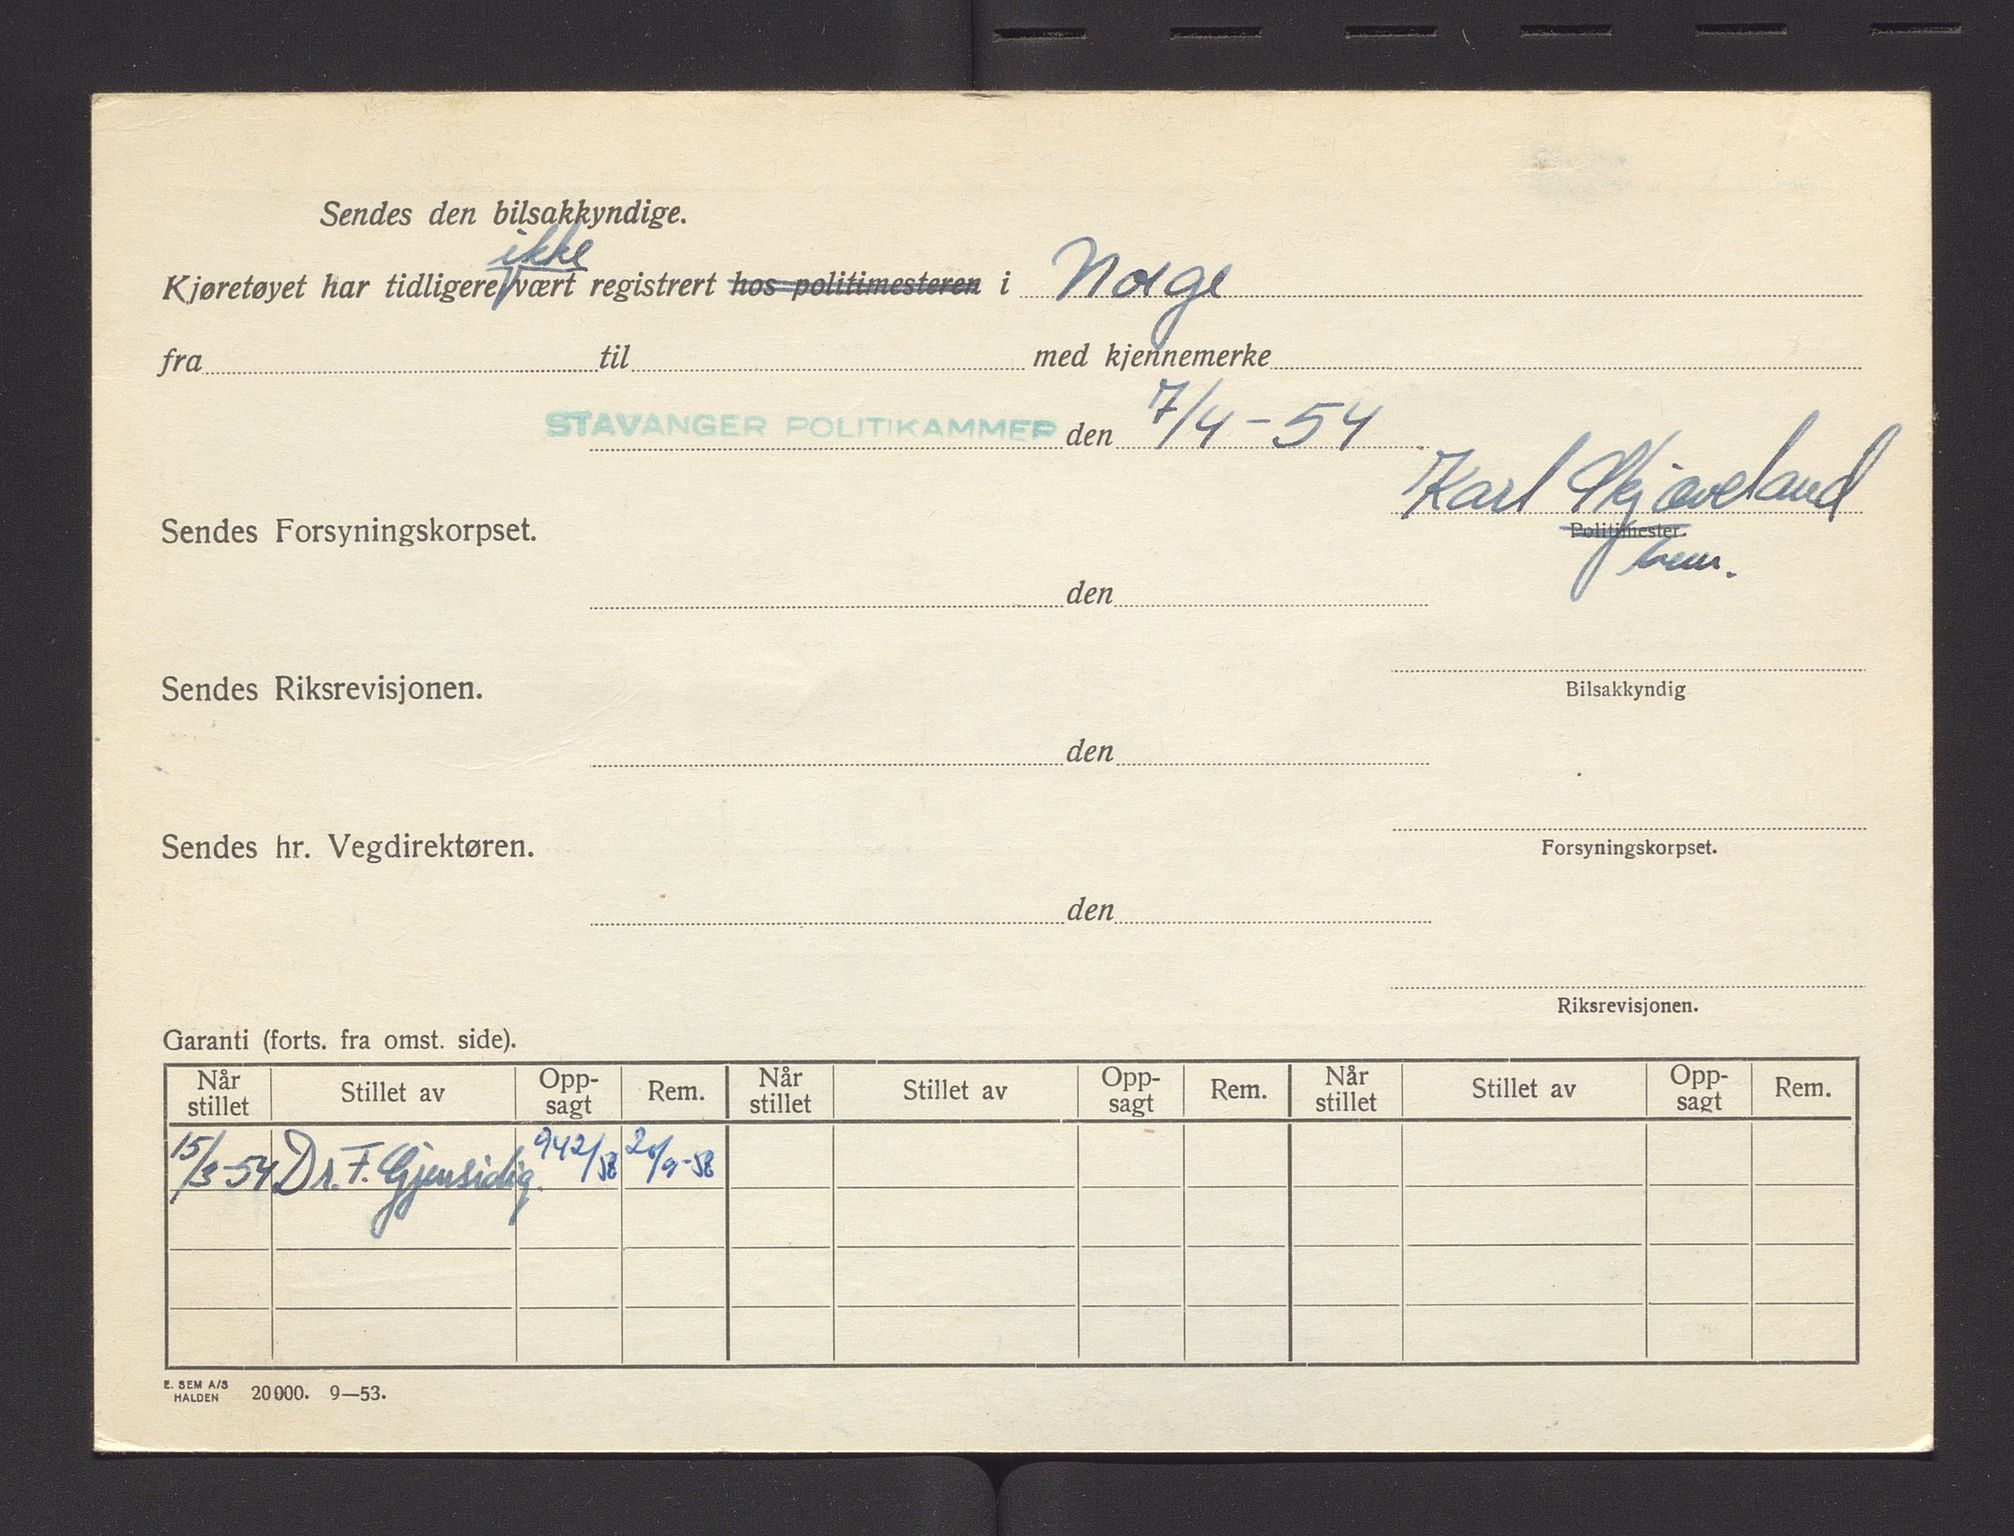 Sendes den bilsakkyndige.
ikke
Kjøretøyet har tidligere vært registrert hos politimesteren i Norge
fra til med kjennemerke
STAVANGER POLITIKAMMER den 7/4-54
Karl Skjæveland
Sendes Forsyningskorpset. Politimester.
den
Sendes Riksrevisjonen. Bilsakkyndig
den
Sendes hr. Vegdirektøren. Forsyningskorpset.
den
Riksrevisjonen.
Garanti (forts. fra omst. side).
Når stillet Stillet av Opp-sagt Rem. Når stillet Stillet av Opp-sagt Rem. Når stillet Stillet av Opp-sagt Rem.
15/3-54 Dr. F. Gjensidig. 942/58 20/9-58
E. SEM A/S
HALDEN 20000. 9—53.